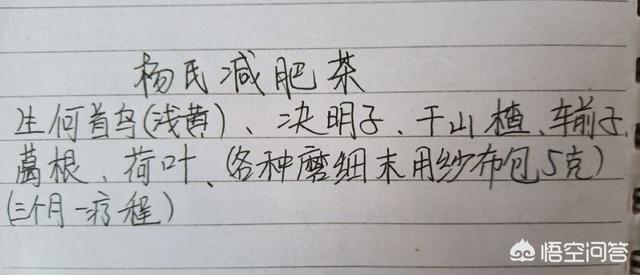 杨氏减肥茶
生何首乌(浅黄)、决明子、干山楂、车前子、
葛根、荷叶、(各种磨细末用纱布包5克)
(三个月一疗程)
悟空问答